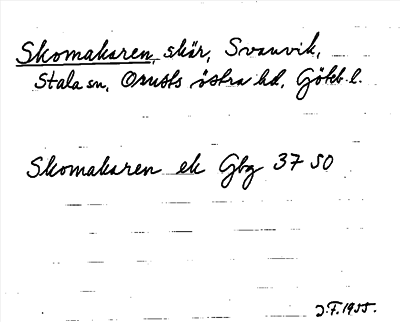 Skomakaren, skär, Svanvik,
Stala sn, Orusts östra hd, Göteb. l.
Skomakaren ek Gbg 37 SO
J.F. 1955.